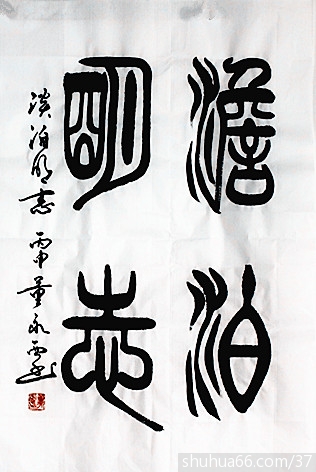 澹泊
明志
淡泊明志 丙申 董永
shuhua66.com/37